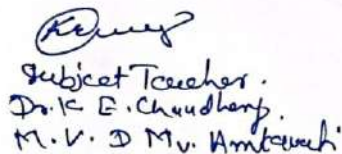 Subject Teacher.
Dr. K. E. Chaudhary.
M. V. D Mv.